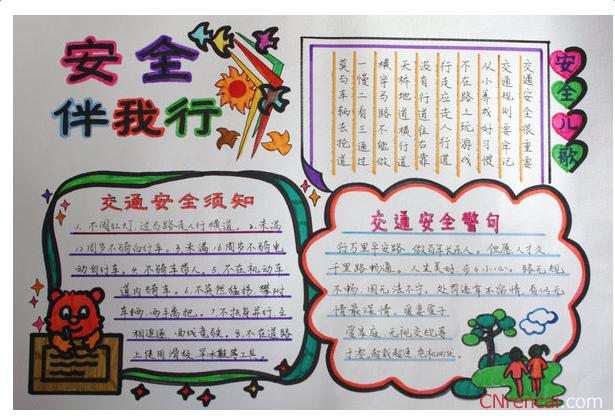 安全
伴我行
安全儿歌
交通安全很重要
交通规则要牢记
从小养成好习惯
不在路上玩游戏
行走应走人行道
没有行道往右靠
天桥地道横行道
横穿马路不能做
一慢二看三通过
莫与车辆去抢道
交通安全须知
1、不闯红灯,过马路走人行横道。2、未满
12周岁不骑自行车。3、未满16周岁不骑电
动自行车。4、不骑车带人。5、不在机动车
道内骑车。6、不突然猛拐、攀附
车辆、两手离把。7、不扶身并行、互
相追逐、曲线竞驶。8、不在道路
上使用滑板、旱冰鞋等工具。
交通安全警句
行万里平安路,做百年长乐人。但愿人长久,
千里路畅通。人生美好,步步小心。路无规
不畅,国无法不宁。处罚违章不留情,看似无
情最深情。爱妻爱子
爱家庭,无视交规等
于零。超载超速 危机四伏
CNrencai.com